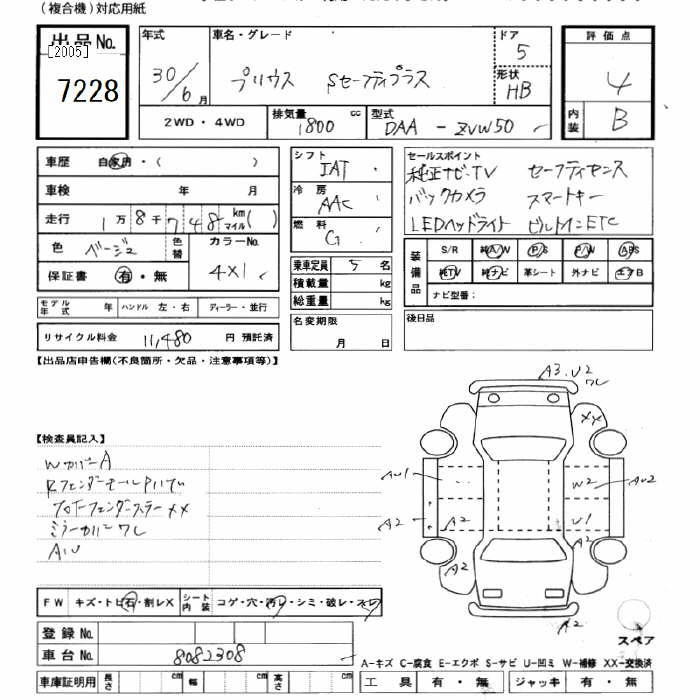 (複合機)対応用紙
出品No.
[2005]
7228
年式
30/6月
車名・グレード
プリウス Sセーフティプラス
ドア
5
形状
HB
評価点
4
内装
B
2WD・4WD
排気量 1800 cc
型式 DAA-ZVW50
車歴 自家用・( )
車検 年 月
走行 1万8千748 km マイル( )
色 ベージュ
色替
カラーNo.
4X1
保証書 有・無
モデル年式 年
ハンドル 左・右
ディーラー・並行
リサイクル料金 11,480 円 預託済
シフト
IAT
冷房
AAC
燃料
G
乗車定員 5 名
積載量 kg
総重量 kg
名変期限
月 日
セールスポイント
純正ナビ・TV セーフティセンス
バックカメラ スマートキー
LEDヘッドライト ビルトインETC
装備品
S/R 純A/W P/S P/W ABS
純TV 純ナビ 革シート 外ナビ エアB
ナビ型番:
後日品
【出品店申告欄(不良箇所・欠品・注意事項等)】
【検査員記入】
WカバーA
ミラーカバーワレ
AU
A3.U2
ワレ
XX
AU1
W2
AU2
A2
A2
U1
A2
A2
A2
スペア
FW キズ・トビ石・割レX
シート内装 コゲ・穴・汚レ・シミ・破レ・スレ
登録No.
車台No. 8082308
車庫証明用 長さ cm 幅 cm 高さ cm
A-キズ C-腐食 E-エクボ S-サビ U-凹ミ W-補修 XX-交換済
工具 有・無 ジャッキ 有・無